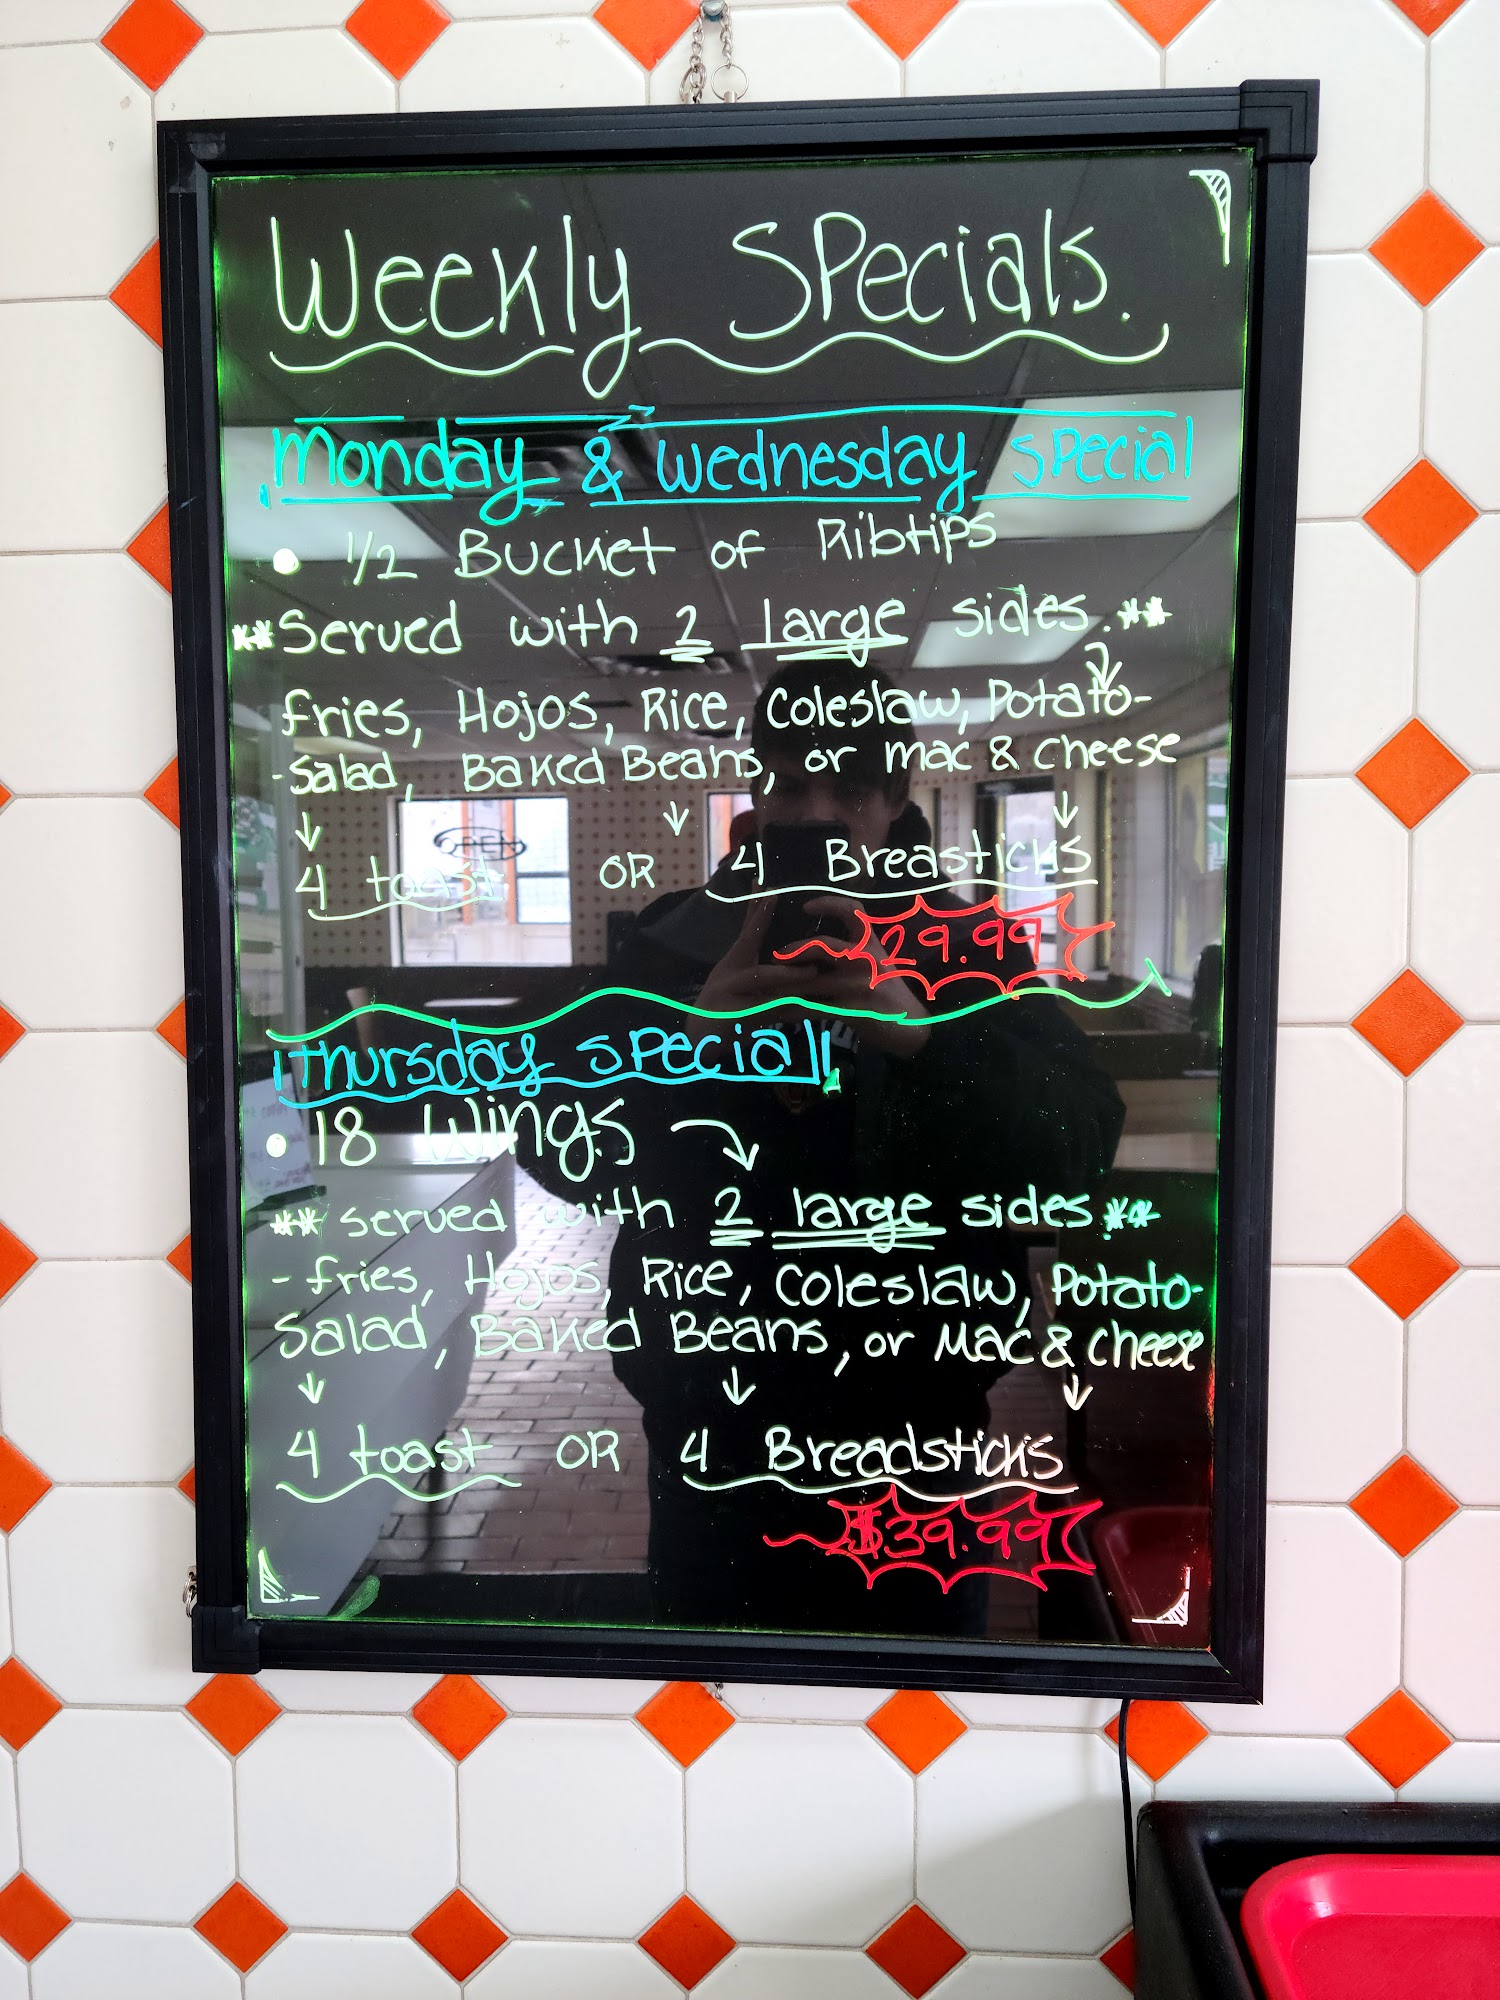 Weekly Specials.
Monday & Wednesday special
• 1/2 Bucket of Ribtips
**Served with 2 large sides.**
fries, Hojos, Rice, Coleslaw, Potato-
-Salad, Baked Beans, or mac & cheese
↓ ↓ ↓
4 toast OR 4 Breasticks
29.99
Thursday special!
• 18 Wings
** served with 2 large sides **
- fries, Hojos, Rice, Coleslaw, Potato-
Salad, Baked Beans, or Mac & cheese
↓ ↓ ↓
4 toast OR 4 Breadsticks
$39.99
OPEN